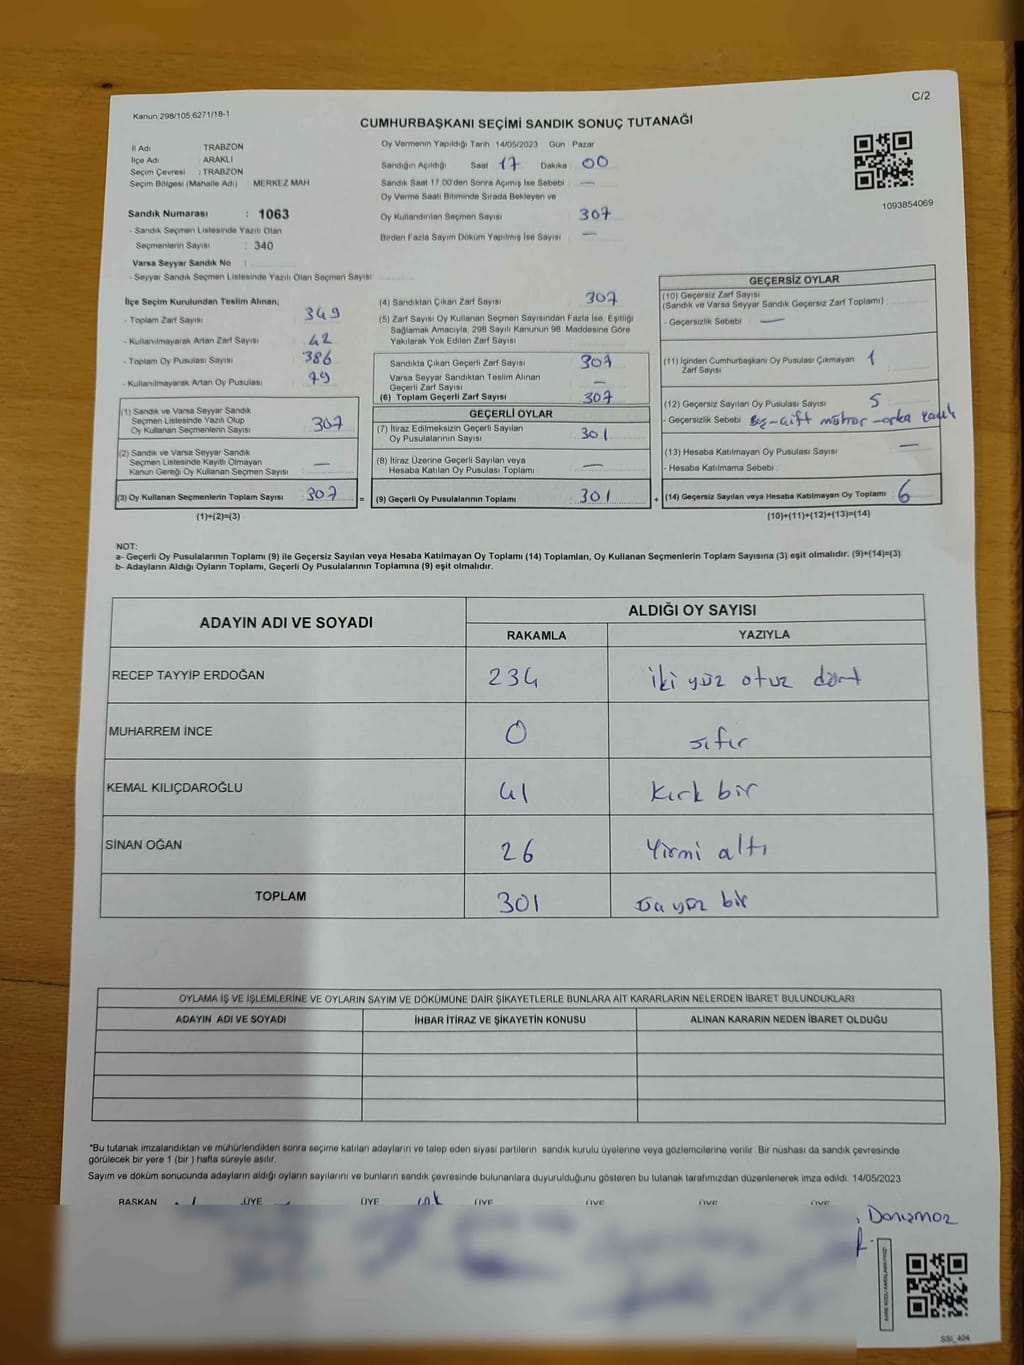 Kanun.298/105,6271/18-1
C/2
CUMHURBAŞKANI SEÇİMİ SANDIK SONUÇ TUTANAĞI
İl Adı TRABZON
İlçe Adı ARAKLI
Seçim Çevresi : TRABZON
Seçim Bölgesi (Mahalle Adı) : MERKEZ MAH
Sandık Numarası : 1063
- Sandık Seçmen Listesinde Yazılı Olan
Seçmenlerin Sayısı : 340
Varsa Seyyar Sandık No :
- Seyyar Sandık Seçmen Listesinde Yazılı Olan Seçmen Sayısı:
Oy Vermenin Yapıldığı Tarih : 14/05/2023 Gün : Pazar
Sandığın Açıldığı Saat : 17 Dakika : 00
Sandık Saat 17.00'den Sonra Açımış İse Sebebi : —
Oy Verme Saati Bitiminde Sırada Bekleyen ve
Oy Kullandırılan Seçmen Sayısı 307
Birden Fazla Sayım Döküm Yapılmış İse Sayısı : —
1093854069
İlçe Seçim Kurulundan Teslim Alınan;
- Toplam Zarf Sayısı : 349
- Kullanılmayarak Artan Zarf Sayısı : 42
- Toplam Oy Pusulası Sayısı : 386
- Kullanılmayarak Artan Oy Pusulası : 79
(1) Sandık ve Varsa Seyyar Sandık
Seçmen Listesinde Yazılı Olup
Oy Kullanan Seçmenlerin Sayısı : 307
(2) Sandık ve Varsa Seyyar Sandık
Seçmen Listesinde Kayıtlı Olmayan
Kanun Gereği Oy Kullanan Seçmen Sayısı : —
(3) Oy Kullanan Seçmenlerin Toplam Sayısı : 307 =
(1)+(2)=(3)
(4) Sandıktan Çıkan Zarf Sayısı : 307
(5) Zarf Sayısı Oy Kullanan Seçmen Sayısından Fazla İse, Eşitliği
Sağlamak Amacıyla, 298 Sayılı Kanunun 98. Maddesine Göre
Yakılarak Yok Edilen Zarf Sayısı :
Sandıkta Çıkan Geçerli Zarf Sayısı : 307
Varsa Seyyar Sandıktan Teslim Alınan
Geçerli Zarf Sayısı : —
(6) Toplam Geçerli Zarf Sayısı : 307
GEÇERLİ OYLAR
(7) İtiraz Edilmeksizin Geçerli Sayılan
Oy Pusulalarının Sayısı : 301
(8) İtiraz Üzerine Geçerli Sayılan veya
Hesaba Katılan Oy Pusulası Toplamı : —
(9) Geçerli Oy Pusulalarının Toplamı : 301 +
GEÇERSİZ OYLAR
(10) Geçersiz Zarf Sayısı
(Sandık ve Varsa Seyyar Sandık Geçersiz Zarf Toplamı) :
- Geçersizlik Sebebi : —
(11) İçinden Cumhurbaşkanı Oy Pusulası Çıkmayan 1
Zarf Sayısı :
(12) Geçersiz Sayılan Oy Pusulası Sayısı : 5
- Geçersizlik Sebebi : Boş-Çift mühür -arka
(13) Hesaba Katılmayan Oy Pusulası Sayısı : —
- Hesaba Katılmama Sebebi :
(14) Geçersiz Sayılan veya Hesaba Katılmayan Oy Toplamı : 6
(10)+(11)+(12)+(13)=(14)
NOT:
a- Geçerli Oy Pusulalarının Toplamı (9) ile Geçersiz Sayılan veya Hesaba Katılmayan Oy Toplamı (14) Toplamları, Oy Kullanan Seçmenlerin Toplam Sayısına (3) eşit olmalıdır. (9)+(14)=(3)
b- Adayların Aldığı Oyların Toplamı, Geçerli Oy Pusulalarının Toplamına (9) eşit olmalıdır.
ADAYIN ADI VE SOYADI ALDIĞI OY SAYISI
RAKAMLA YAZIYLA
RECEP TAYYİP ERDOĞAN 234 iki yüz otuz dört
MUHARREM İNCE 0 sıfır
KEMAL KILIÇDAROĞLU 41 kırk bir
SİNAN OĞAN 26 Yirmi altı
TOPLAM 301 üç yüz bir
OYLAMA İŞ VE İŞLEMLERİNE VE OYLARIN SAYIM VE DÖKÜMÜNE DAİR ŞİKAYETLERLE BUNLARA AİT KARARLARIN NELERDEN İBARET BULUNDUKLARI
ADAYIN ADI VE SOYADI İHBAR İTİRAZ VE ŞİKAYETİN KONUSU ALINAN KARARIN NEDEN İBARET OLDUĞU
*Bu tutanak imzalandıktan ve mühürlendikten sonra seçime katılan adayların ve talep eden siyasi partilerin sandık kurulu üyelerine veya gözlemcilerine verilir. Bir nüshası da sandık çevresinde
görülecek bir yere 1 (bir) hafta süreyle asılır.
Sayım ve döküm sonucunda adayların aldığı oyların sayılarını ve bunların sandık çevresinde bulunanlara duyurulduğunu gösteren bu tutanak tarafımızdan düzenlenerek imza edildi. 14/05/2023
BAŞKAN ÜYE ÜYE ÜYE ÜYE ÜYE ÜYE
SSI_404